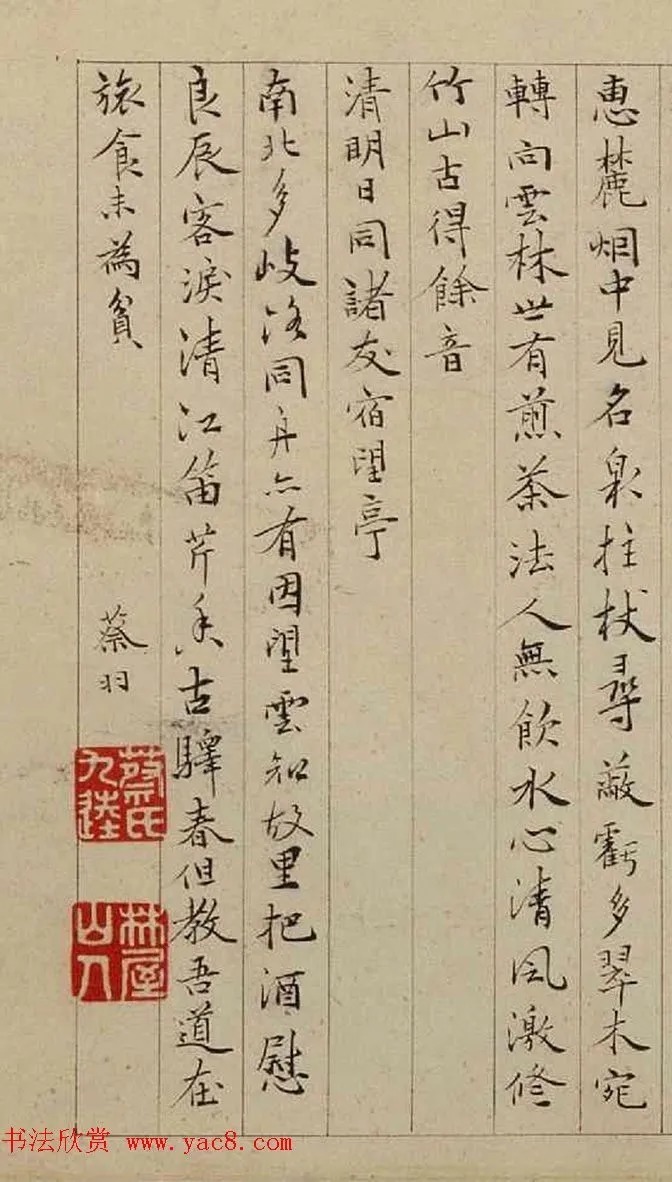 惠麓烟中見名泉拄杖尋蔽虧多翠木宛
轉向雲林世有煎茶法人無飲水心清風激修
竹山古得餘音
清明日同諸友宿望亭
南北多歧路同舟亦有因望雲知故里把酒慰
良辰客淚清江笛芹香古驛春但教吾道在
旅食未為貧
蔡羽
蔡氏九逵
林屋山人
书法欣赏 www.yac8.com